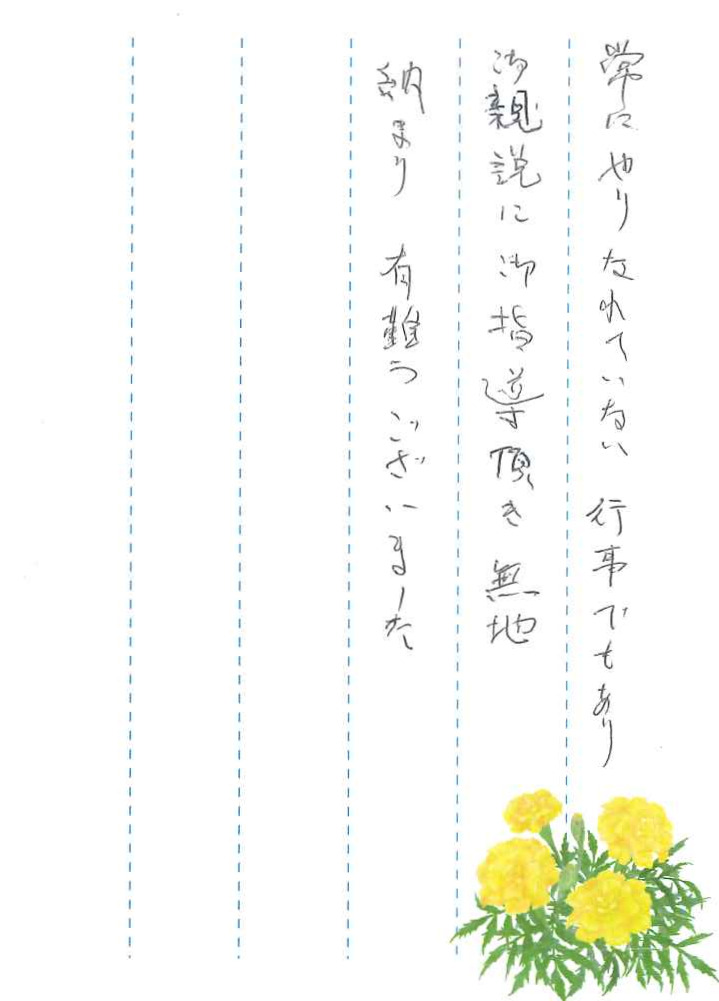 常にやりなれていない 行事でもあり
御親説に御指導頂き 無地
納まり 有難うございました